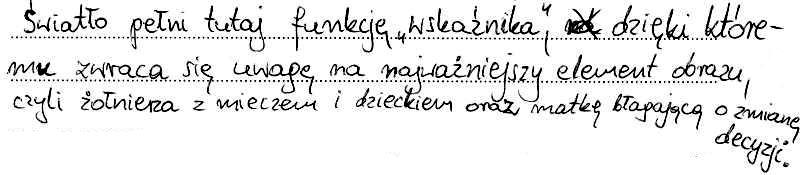 Światło pełni tutaj funkcję „wskaźnika", dzięki które-
mu zwraca się uwagę na najważniejszy element obrazu,
czyli żołnierza z mieczem i dzieckiem oraz matkę błagającą o zmianę
decyzji.